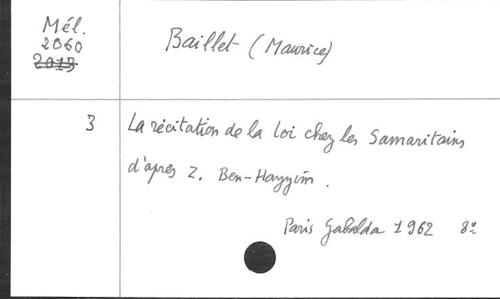 Mél.
2060
2013
Baillet (Maurice)
3
La récitation de la Loi chez les Samaritains
d'après Z. Ben-Hayyim.
Paris Gabalda 1962 8º